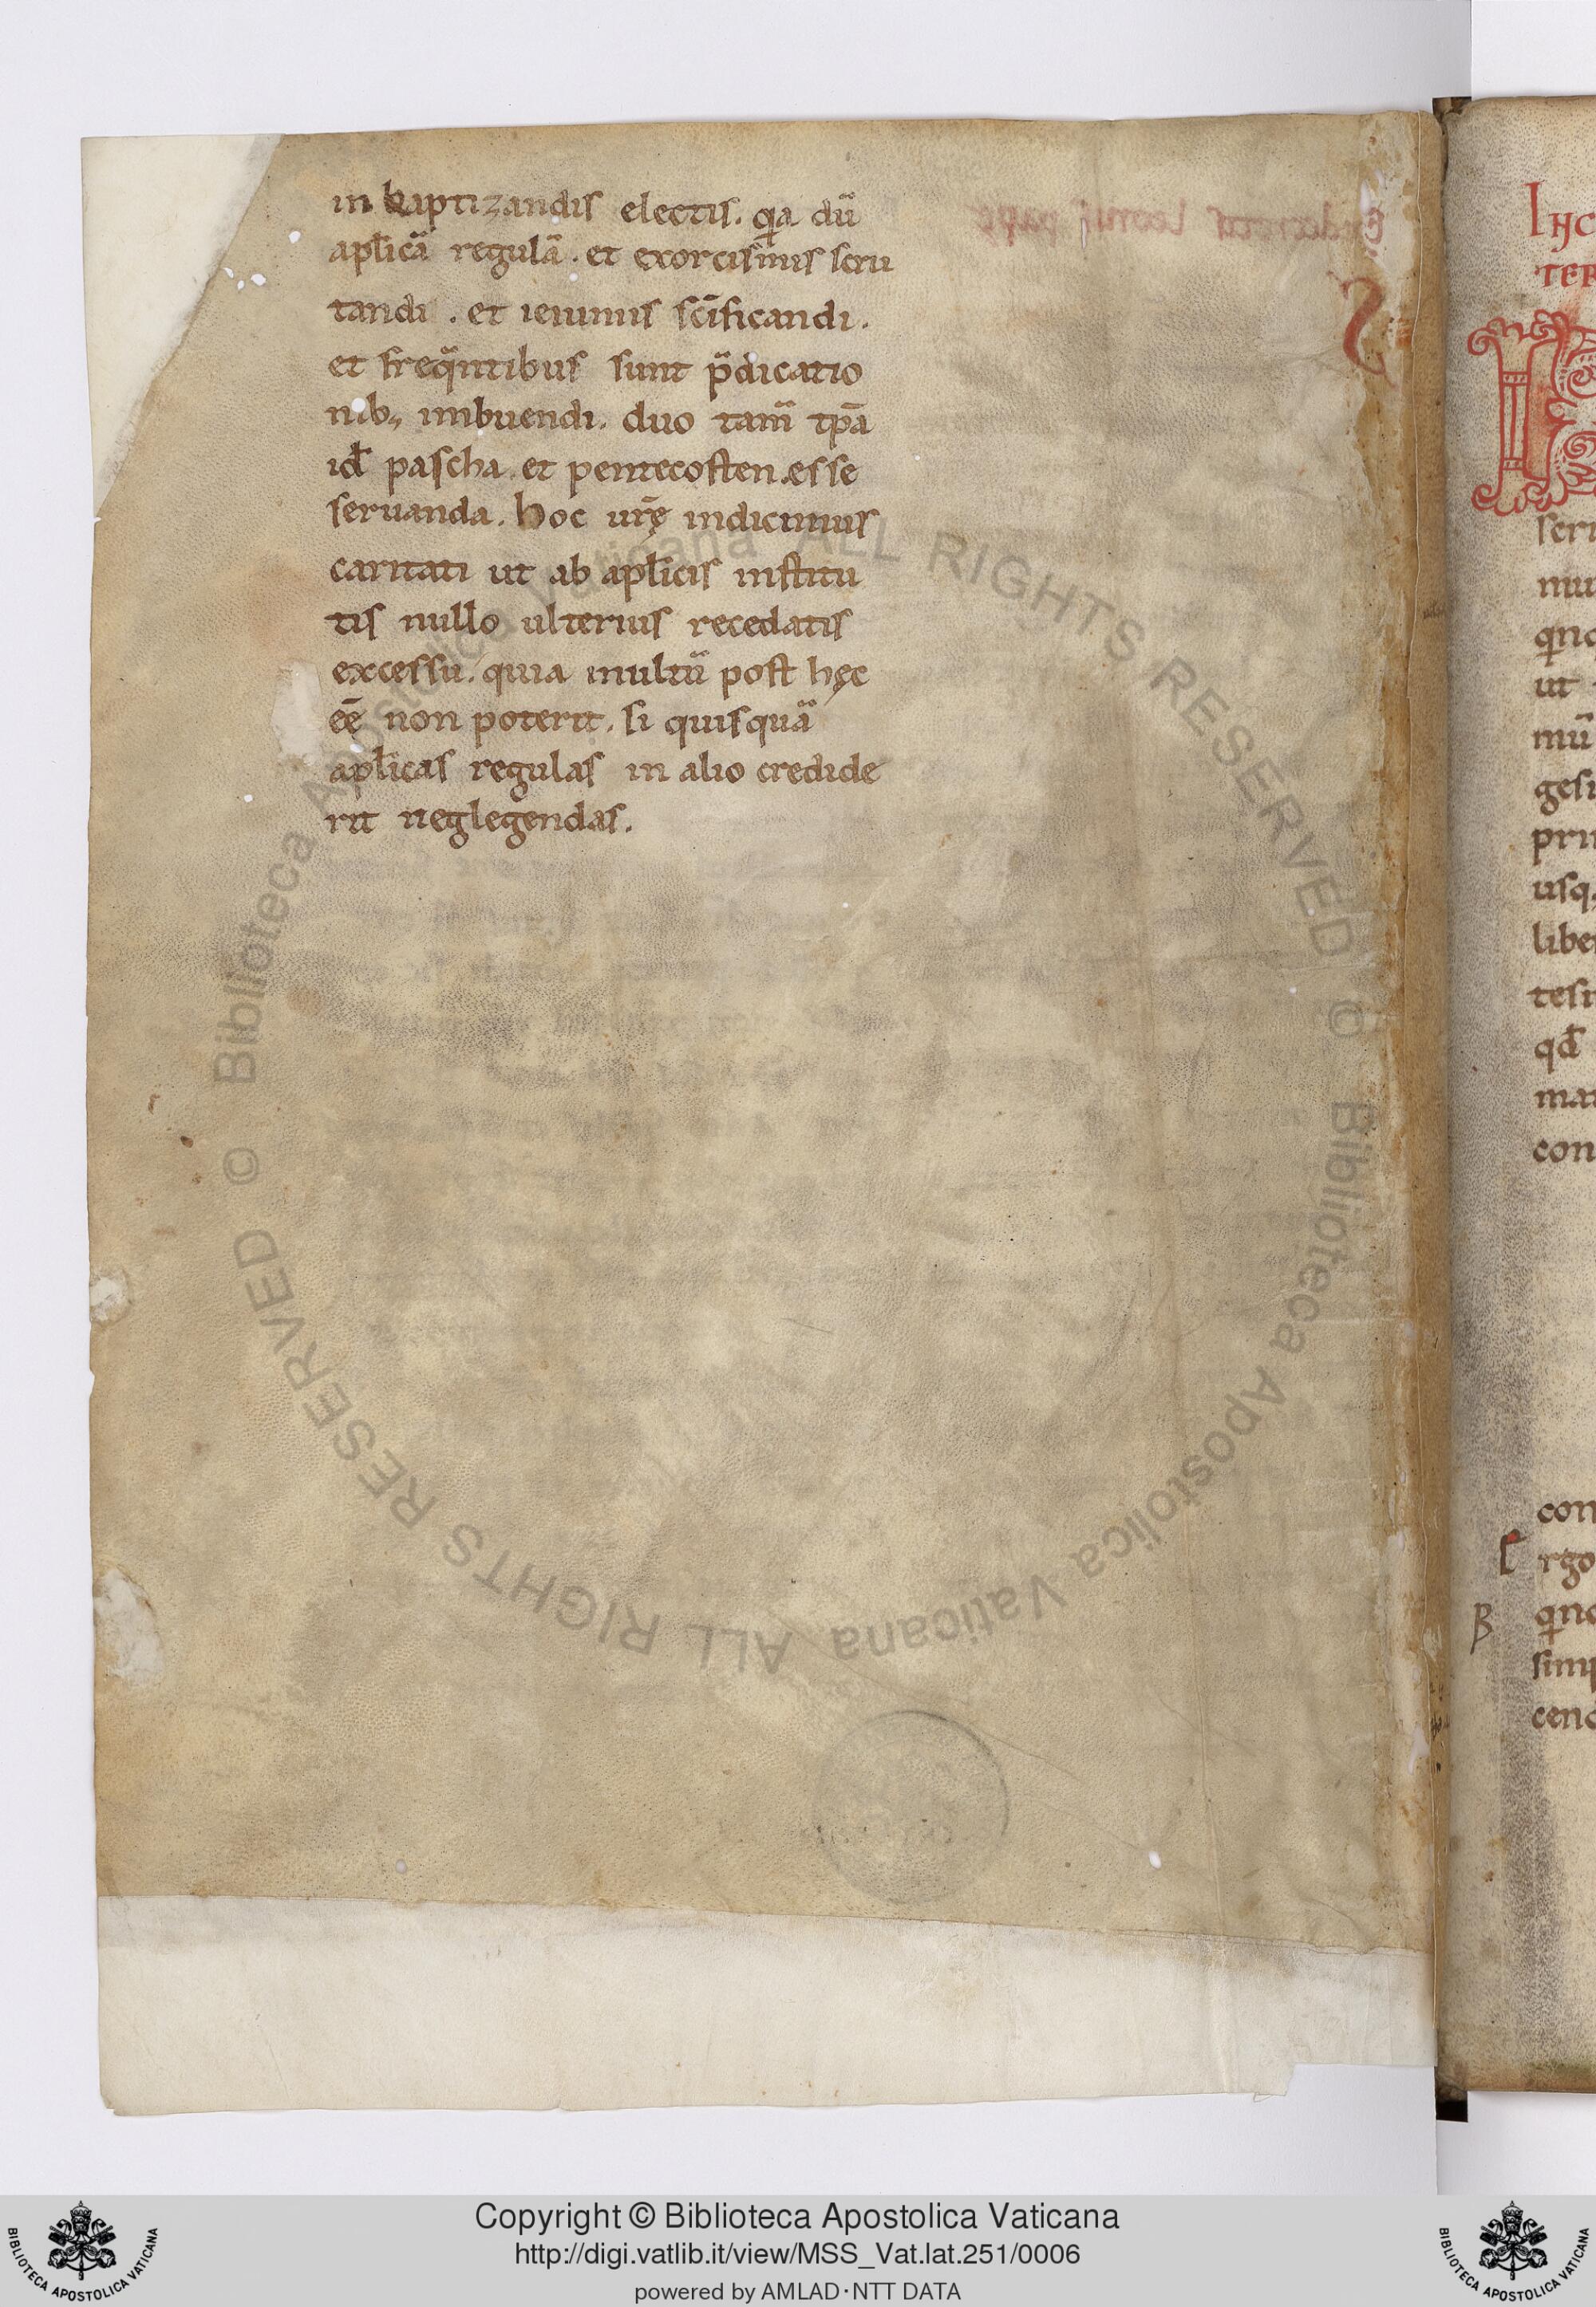 in baptizandis electis. qa dū
aplicā regulā. et exorcismis scru
tandi. et ieiuniis scīficandi.
et freqntibus sunt p̄dicatio
nib; imbuendi. duo tam̄ tp̄a
id̄ pascha. et pentecosten. esse
seruanda. hoc ur̄ę indicimus
caritati ut ab aplicis institu
tis nullo ulterius recedatis
excessu. quia inultū post hęc
eē non poterit. si quisquā
aplicas regulas in alio credide
rit neglegendas.
seri
mu
qno
ut
mū
gesi
prin
usq;
libe
tesi
qd̄
mar
con
con
rgo
B qno
simp
ceno
© Biblioteca Apostolica Vaticana ALL RIGHTS RESERVED © Biblioteca Apostolica Vaticana ALL RIGHTS RESERVED
Copyright © Biblioteca Apostolica Vaticana
http://digi.vatlib.it/view/MSS_Vat.lat.251/0006
powered by AMLAD·NTT DATA
BIBLIOTECA APOSTOLICA VATICANA
BIBLIOTECA APOSTOLICA VATICANA